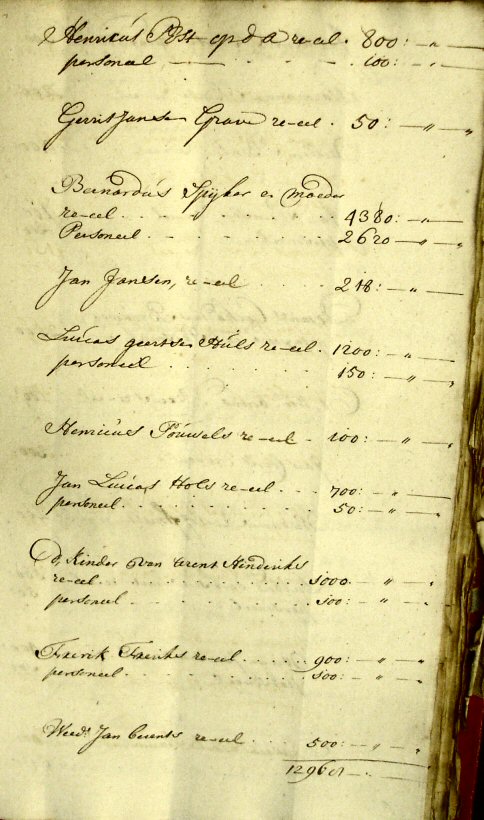 Henricús Post op d A re-eel. 800: — " —
personeel — . . 100: — " —
Gerrit Jansen Grave re-eel. 50: — " — "
Bernardús Spyker en moeder
re-eel . . . . 4380: — " —
Personeel . . . . 2620 — " — "
Jan Janssen, re-eel . . . 218: — " —
Lúcas geertsen Húls re-eel. 1200: — " —
personeel . . . . 150: — " — "
Henricús Poúsels re-eel - 100: — " — "
Jan Lúcas Hols re-eel . . . 700: — " —
personeel . . . . 50: — " — "
De Kinder van berent Hendriks
re-eel . . . . 1000 — " — "
personeel . . . . 100: — " — "
Frerik Freriks re-eel . . . . 900: — " — "
personeel . . . . 100: — " — "
Weedᵉ Jan berents re-eel . . . 500: — " — "